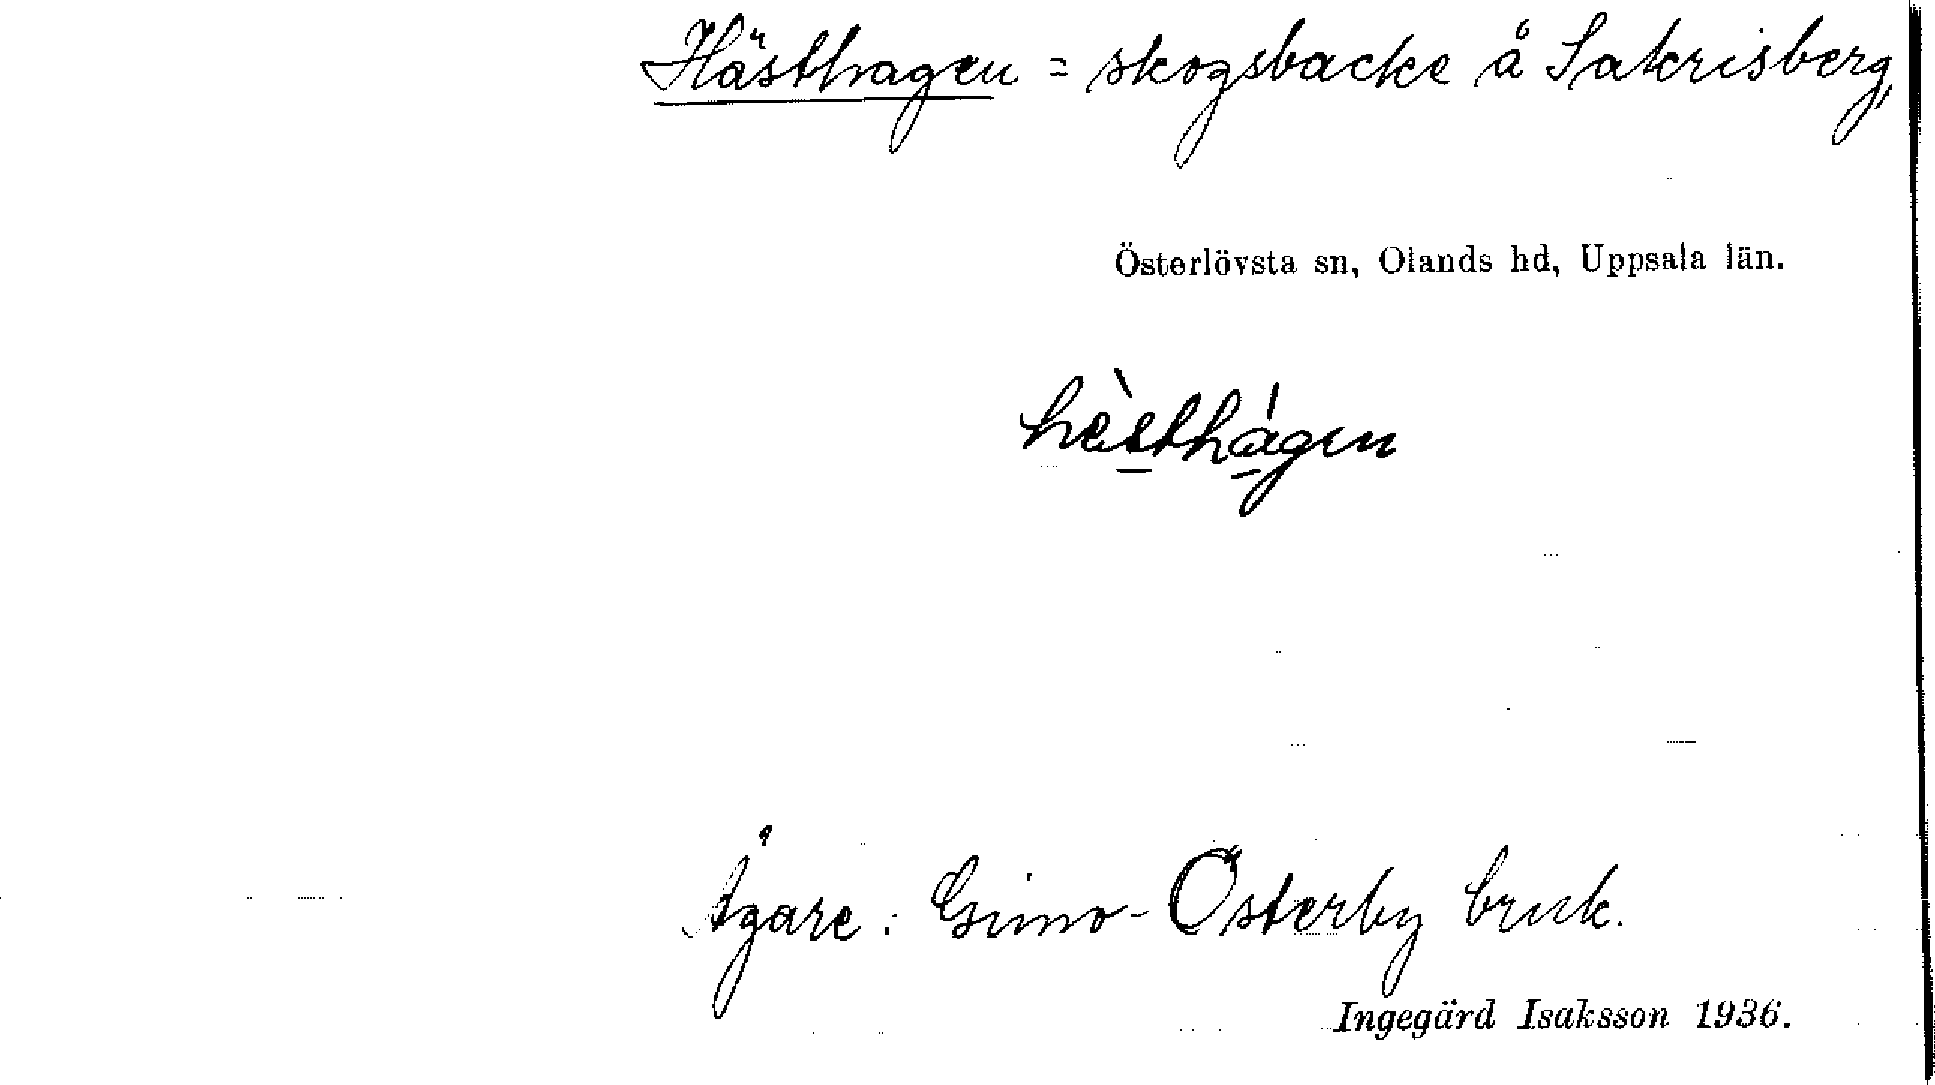 Hästhagen = skogsbacke å Sakrisberg,
Österlövsta sn, Olands hd, Uppsala län.
hèsthágen
Ägare: Gimo-Österby bruk.
Ingegärd Isaksson 1936.